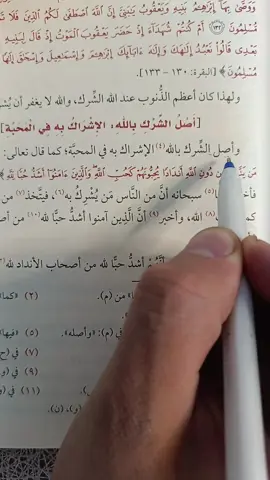 وَوَصَّىٰ بِهَآ إِبْرَٰهِـۧمُ بَنِيهِ وَيَعْقُوبُ يَٰبَنِيَّ إِنَّ ٱللَّهَ ٱصْطَفَىٰ لَكُمُ ٱلدِّينَ فَلَا
مُّسْلِمُونَ أَمْ كُنتُمْ شُهَدَآءَ إِذْ حَضَرَ يَعْقُوبَ ٱلْمَوْتُ إِذْ قَالَ لِبَنِيهِ
بَعْدِى قَالُوا۟ نَعْبُدُ إِلَٰهَكَ وَإِلَٰهَ ءَابَآئِكَ إِبْرَٰهِـۧمَ وَإِسْمَٰعِيلَ وَإِسْحَٰقَ إِلَٰهًا
مُسْلِمُونَ﴾ [البقرة: ١٣٠ - ١٣٣].
ولهذا كان أعظم الذُّنوب عند الله الشِّرك، والله لا يغفر أن
[أصْلُ الشِّرْكِ باللهِ: الإشْراكُ به في المحبَّة]
وأصل الشِّرك بالله(٤) الإشراك به في المحبَّة؛ كما قال تعالى:
دُونِ ٱللَّهِ أَندَادًا يُحِبُّونَهُمْ كَحُبِّ ٱللَّهِ وَٱلَّذِينَ ءَامَنُوٓا۟ أَشَدُّ حُبًّا لِّلَّهِ﴾
(٥) سبحانه أنَّ من الناس مَن يُشْرِكُ به(٦)، فيتَّخذ(٧) من
كما (٨) الله، وأخبر(٩) أنَّ الَّذين آمنوا أشدُّ حبًّا لله(١٠) من
أشدُّ حبًّا لله من أصحاب الأنداد لله
من (م).
(٢) «كما
في (م): «وأصله».
(٥) «فيها
(٧) في (ح
(٩) في (و
و(ن).
(١١) في